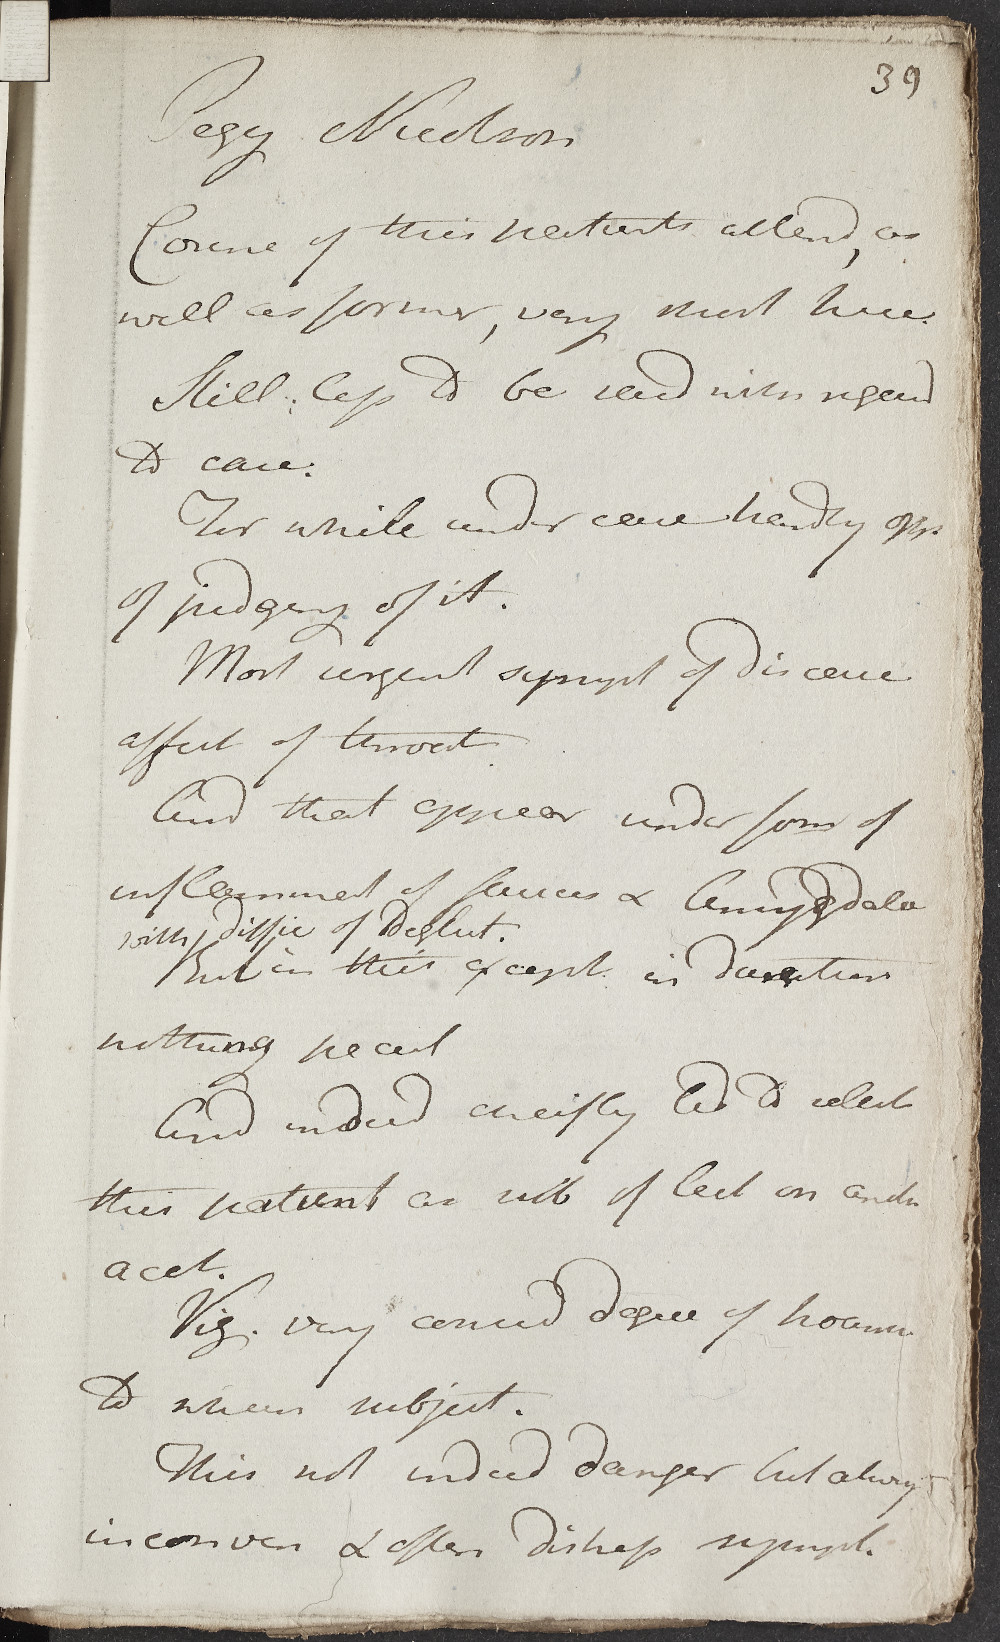 39
Pegy Nielson
Course of this patients attend, as
well as former, very short here.
Still less to be said with regard
to case.
For while under care hardly opp.
of judging of it.
Most urgent sympt of disease
affect of throat
And that appear under form of
inflammat of fauces & Amygdala
with diffic of Deglut.
But in this except in duration
nothing pecul
And indeed cheifly led to select
this patient as sub of lect on
acct.
Viz. very consid degree of hoarsn
to when subject.
This not indeed danger but alway
inconven & often distress sympt.